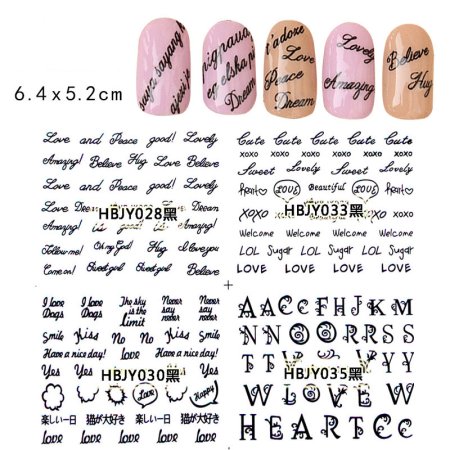 t'adoze
Love
Peace
Dream
Dream
Lovely
Amazing
Believe
Hug
6.4x5.2cm
Love and Peace good! Lovely
Amazing! Believe Hug Lovely
Love and Peace good! Lovely
Love Dream Dream
HBJY028黑
is good is Amazing!
Follow me! Oh my God! Hug I love you
Come on! Sweet girl Sweet girl Believe
Cute Cute Cute Cute Cute
xoxo xoxo xoxo xoxo xoxo
Sweet Lovely Sweet Lovely
Heart LOVE Beautiful LOVE
XOXO
HBJY033黑
Welcome Welcome Welcome Welcome
LOL Sugar LOL Sugar
LOVE LOVE LOVE LOVE
I love Dogs I love Dogs The sky is the limit Never say never Never say never
Smile Kiss No No Kiss Smile
Have a nice day! Have a nice day!
Yes Yes Yes Yes
HBJY030黑
Love Happy
楽しい一日 猫が大好き 楽しい一日 猫が大好き
love love love love love
AACCFHJKM
NNOORRSS
TT YY
HBJY035黑
WLOVEW
HEARTCC